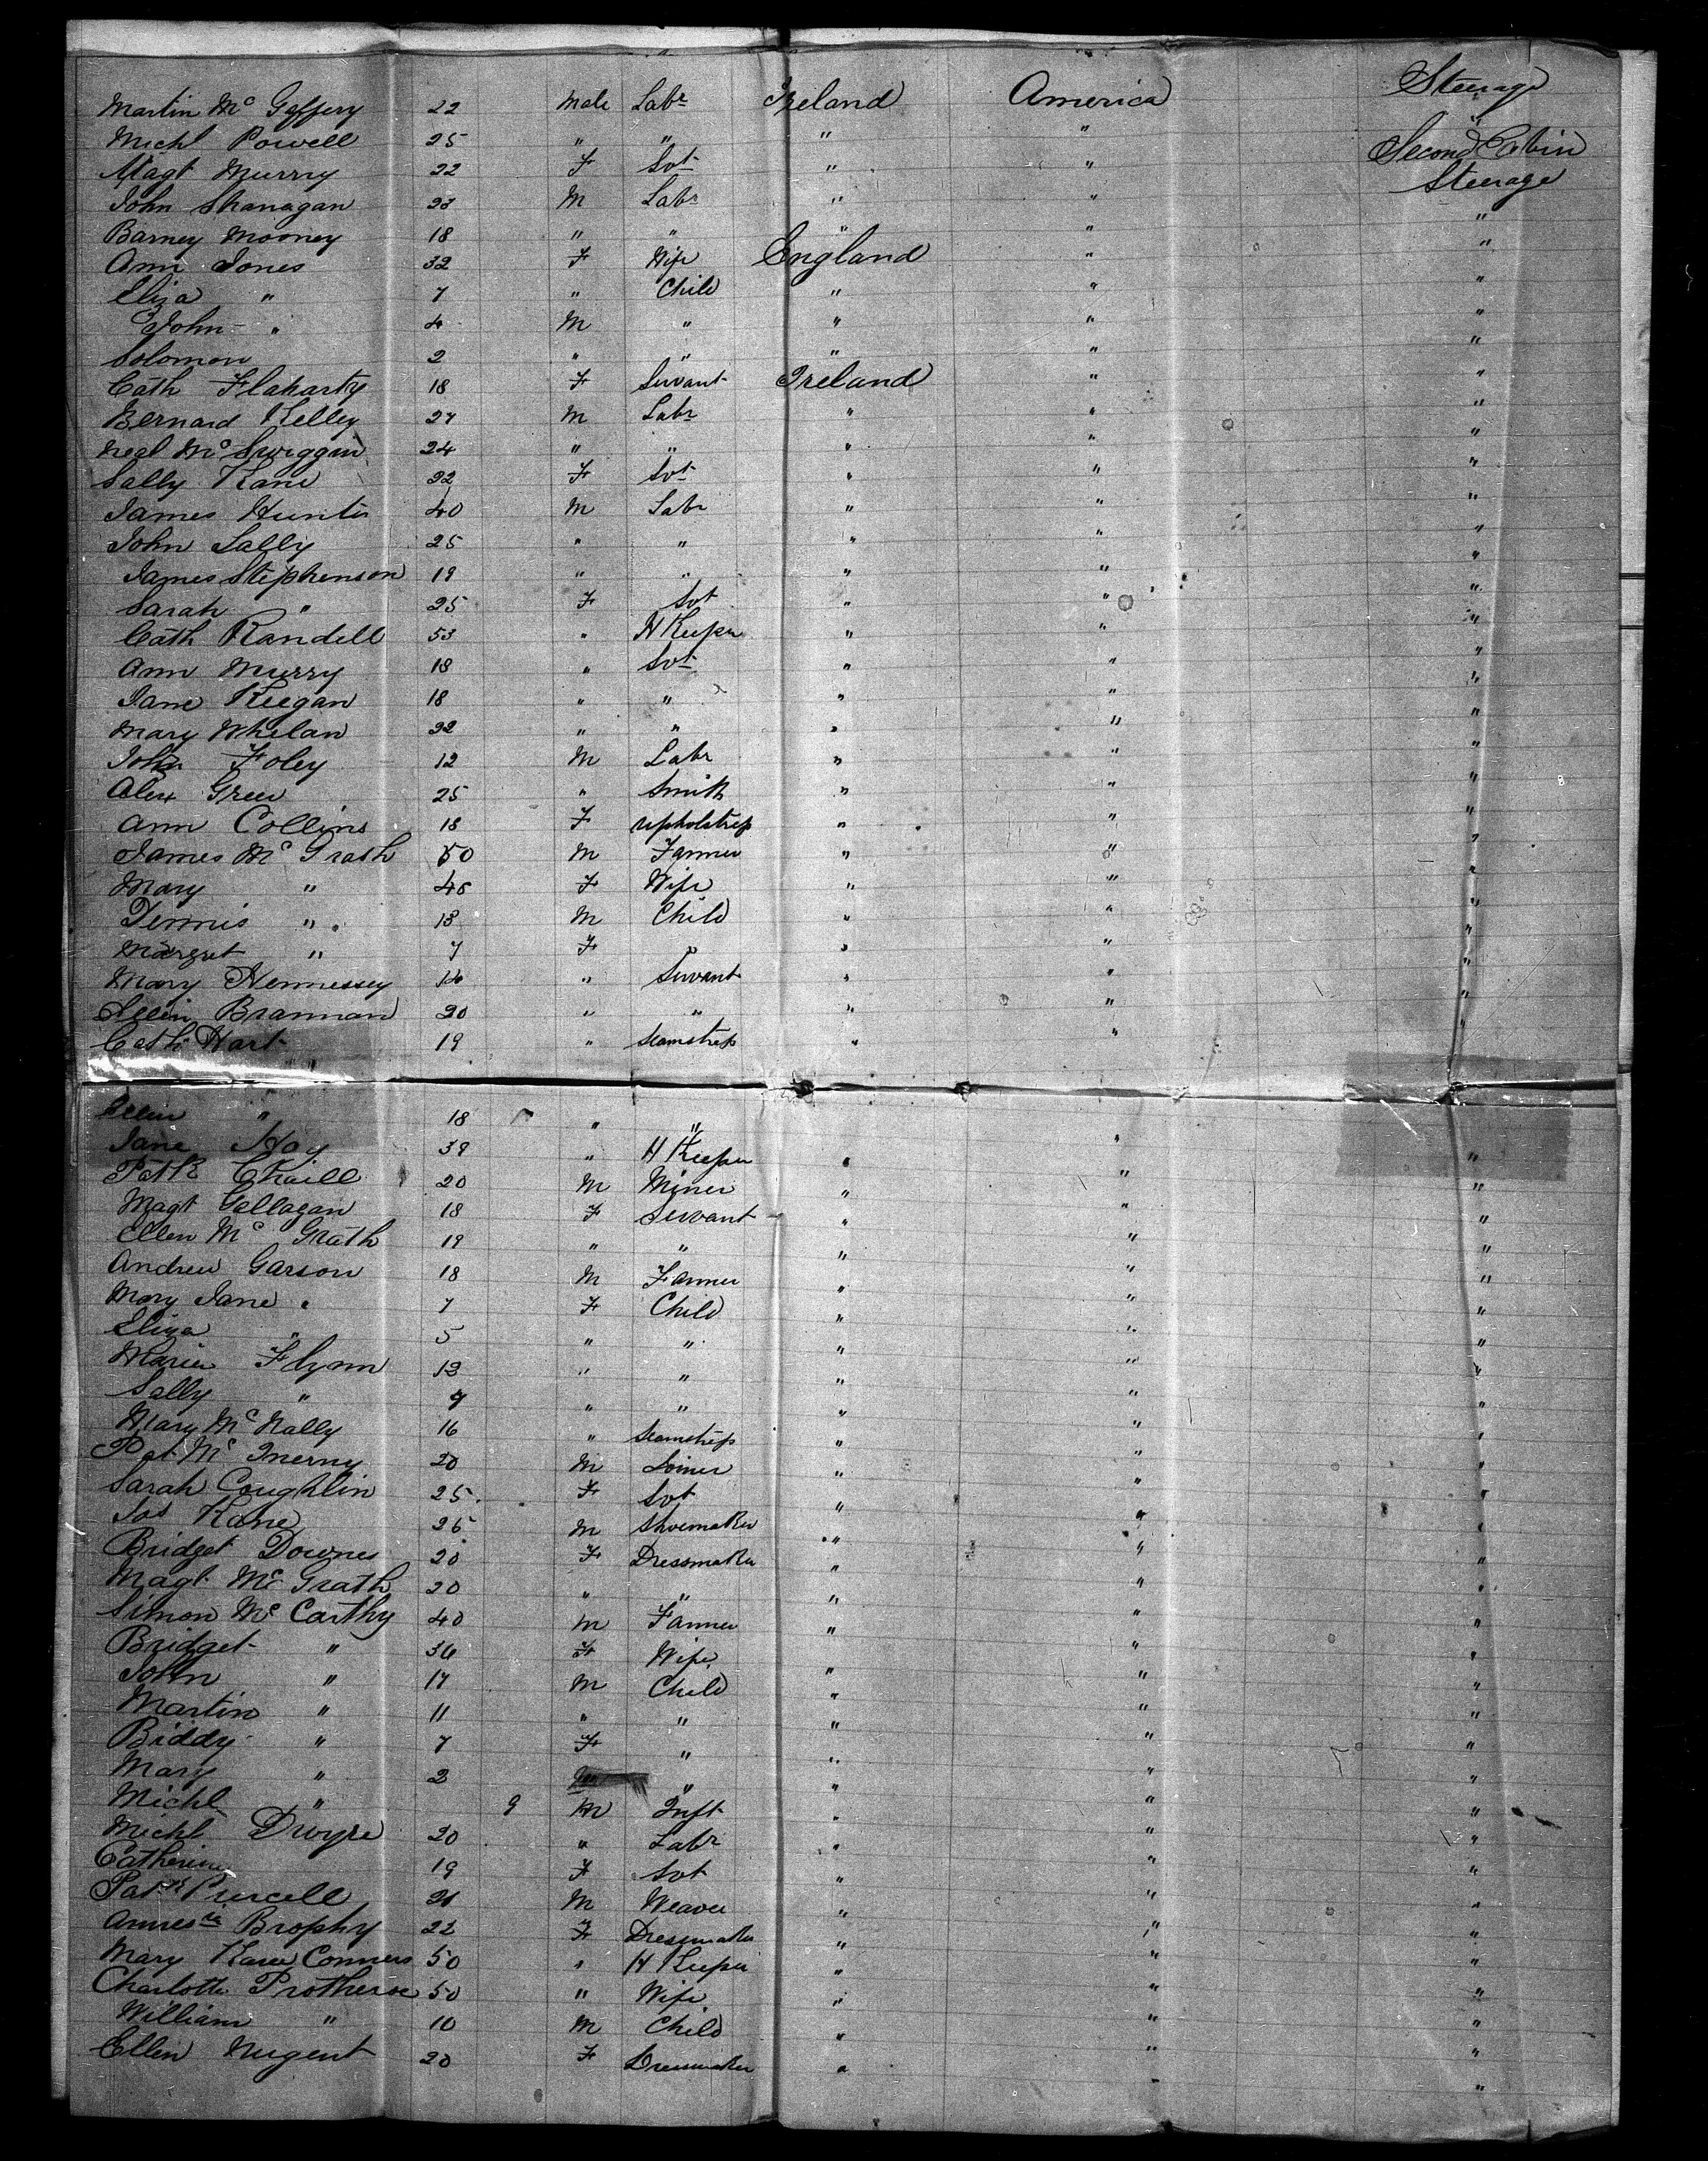 Martin Mc Gaffery 22 Male Labr Ireland America Steerage
Michl Powell 25 " " " " "
Magt Murry 22 F Svt " " Second Cabin
John Shanagan 23 M Labr " " Steerage
Barney Mooney 18 " " " " "
Ann Jones 32 F Wife England " "
Eliza " 7 " Child " " "
John " 4 M " " " "
Solomon 2 " " " " "
Cath Flaharty 18 F Servant Ireland " "
Bernard Kelley 27 M Labr " " "
Neal Mc Swiggin 24 " " " " "
Sally Kane 22 F Svt " " "
James Hunter 40 M Labr " " "
John Lally 25 " " " " "
James Stephenson 19 " " " " "
Sarah " 25 F Svt " " "
Cath Randell 53 " H Keeper " " "
Ann Murry 18 " Svt " " "
Jane Keegan 18 " " " " "
Mary Whelan 22 " " " " "
John Foley 12 M Labr " " "
Alex Greer 25 " Smith " " "
Ann Collins 18 F Upholstress " " "
James Mc Grath 50 M Farmer " " "
Mary " 45 F Wife " " "
Dennis " 13 M Child " " "
Margret " 7 F " " " "
Mary Hennessey " Servant " " "
Ellen Brannan 20 " " " " "
Cath Hart 19 " Seamstress " " "
Ellen " 18 " " " "
Jane Hoy 39 " H Keeper " " "
Patk 20 M Miner " " "
Magt Gallagan 18 F Servant " " "
Ellen Mc Grath 19 " " " " "
Andrew Garson 18 M Farmer " " "
Mary Jane " 7 F Child " " "
Eliza " 5 " " " " "
Maria Flynn 13 " " " " "
Sally " 9 " " " " "
Mary Mc Nally 16 " Seamstress " " "
Pat Mc Inerny 20 M Joiner " " "
Sarah Coughlin 25 F Svt " " "
Jas Kane 25 M Shoemaker " " "
Bridget Downes 20 F Dressmaker " " "
Magt Mc Grath 20 " " " " "
Simon Mc Carthy 40 M Farmer " " "
Bridget " 36 F Wife " " "
John " 17 M Child " " "
Martin " 11 " " " " "
Biddy " 7 F " " " "
Mary " 2 " " " "
Michl " 9 M Inft " " "
Michl Dwyre 20 " Labr " " "
Catherine 19 F Svt " " "
Patk Purcell 21 M Weaver " " "
Brophy 22 F Dressmaker " " "
Mary Conners 50 " H Keeper " " "
Charlotte Protheroe 50 " Wife " " "
William " 10 M Child " " "
Ellen Nugent 20 F Dressmaker " " "